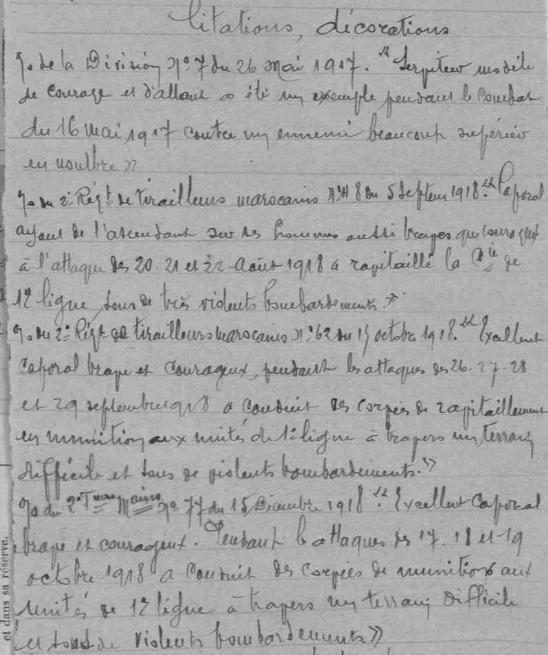 Citations, décorations
Jo de la Division No 7 du 26 mai 1917. "Serviteur modèle
de courage et d'allant a été un exemple pendant le combat
du 16 mai 1917 contre un ennemi beaucoup supérieur
en nombre"
Jo du 2e Régt de tirailleurs marocains No 48 du 5 Septem 1918. "Caporal
ayant de l'ascendant sur ses hommes aussi braves que courageux
à l'attaque des 20-21 et 22 Août 1918 a ravitaillé la Cie de
1e ligne sous de très violents bombardements."
Jo du 2e Régt de tirailleurs marocains No 62 du 15 octobre 1918. "Excellent
Caporal brave et courageux, pendant les attaques des 26-27-28
et 29 septembre 1918 a conduit des corvées de ravitaillement
en munition aux unités de 1e ligne à travers un terrain
difficile et sous de violents bombardements."
Jo du 2e Tirrs Mains No 77 du 15 Décembre 1918 "Excellent Caporal
brave et courageux. Pendant les attaques des 17. 18 et 19
octobre 1918 a conduit des corvées de munitions aux
unités de 1e ligne à travers un terrain difficile
et sous de violents bombardements"
et dans sa réserve.